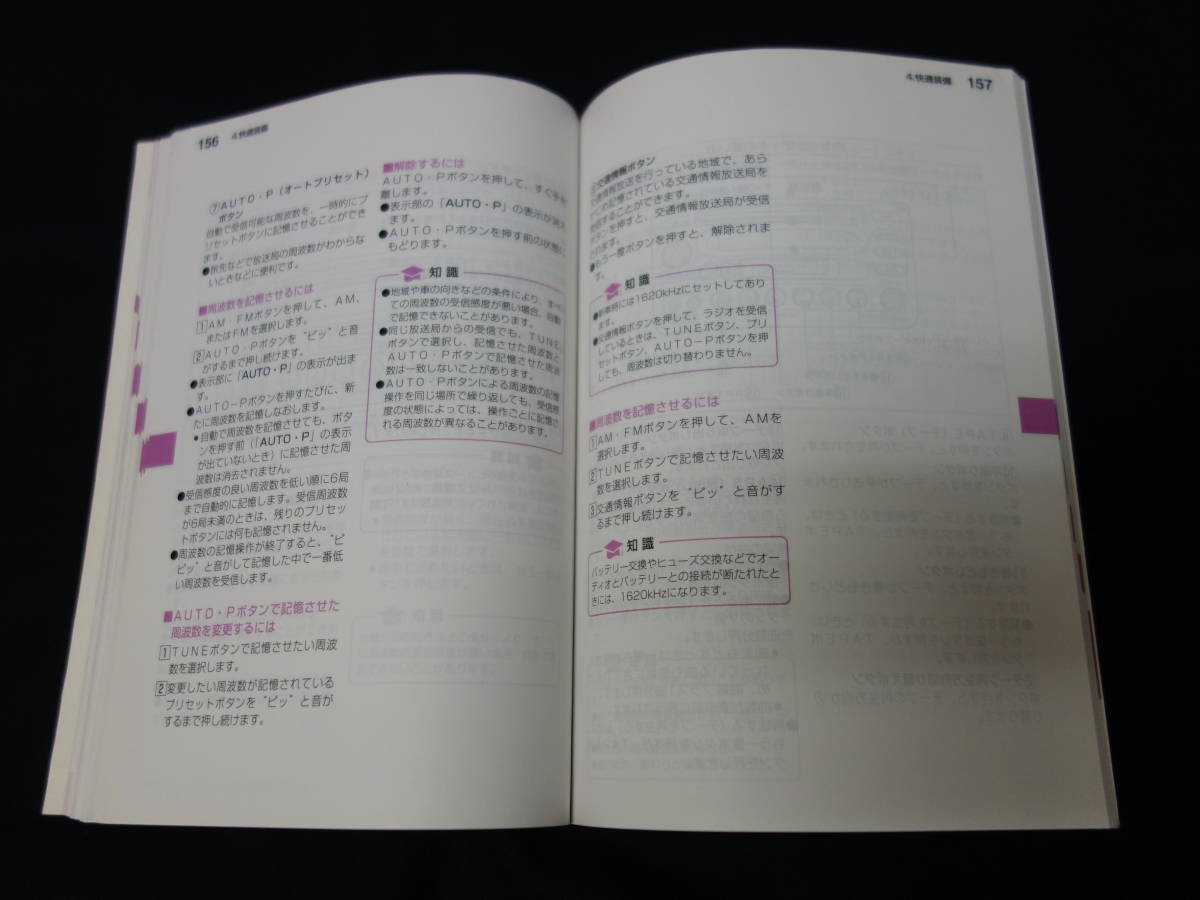 156 4.快適装備
⑦AUTO・P(オートプリセット)
ボタン
自動で受信可能な周波数を、一時的にプ
リセットボタンに記憶させることができ
ます。
●旅先などで放送局の周波数がわからな
いときなどに便利です。
■周波数を記憶させるには
1 AM・FMボタンを押して、AM、
またはFMを選択します。
2 AUTO・Pボタンを“ピッ”と音
がするまで押し続けます。
●表示部に「AUTO・P」の表示が出ま
す。
●AUTO-Pボタンを押すたびに、新
たに周波数を記憶しなおします。
●自動で周波数を記憶させても、ボタ
ンを押す前(「AUTO・P」の表示
が出ていないとき)に記憶させた周
波数は消去されません。
●受信感度の良い周波数を低い順に6局
まで自動的に記憶します。受信周波数
が6局未満のときは、残りのプリセッ
トボタンには何も記憶されません。
●周波数の記憶操作が終了すると、“ピ
ピッ”と音がして記憶した中で一番低
い周波数を受信します。
■AUTO・Pボタンで記憶させた
周波数を変更するには
1 TUNEボタンで記憶させたい周波
数を選択します。
2 変更したい周波数が記憶されている
プリセットボタンを“ピッ”と音が
するまで押し続けます。
■解除するには
AUTO・Pボタンを押して、すぐ手を
離します。
●表示部の「AUTO・P」の表示が消え
ます。
●AUTO・Pボタンを押す前の状態に
もどります。
知識
●地域や車の向きなどの条件により、すべ
ての周波数の受信感度が悪い場合、自動
で記憶できないことがあります。
●同じ放送局からの受信でも、TUNE
ボタンで選択し、記憶させた周波数と
AUTO・Pボタンで記憶させた周波
数は一致しないことがあります。
●AUTO・Pボタンによる周波数の記憶
操作を同じ場所で繰り返しても、受信感
度の状態によっては、操作ごとに記憶さ
れる周波数が異なることがあります。
4.快適装備 157
交通情報ボタン
交通情報放送を行っている地域で、あら
かじめ記憶されている交通情報放送局を
受信することができます。
ボタンを押すと、交通情報放送局が受信
されます。
●もう一度ボタンを押すと、解除されま
す。
知識
●新車時には1620kHzにセットしてあり
ます。
●交通情報ボタンを押して、ラジオを受信
しているときは、TUNEボタン、プリ
セットボタン、AUTO-Pボタンを押
しても、周波数は切り替わりません。
■周波数を記憶させるには
1 AM・FMボタンを押して、AMを
選択します。
2 TUNEボタンで記憶させたい周波
数を選択します。
3 交通情報ボタンを“ピッ”と音がす
るまで押し続けます。
知識
バッテリー交換やヒューズ交換などでオー
ディオとバッテリーとの接続が断たれたと
きには、1620kHzになります。